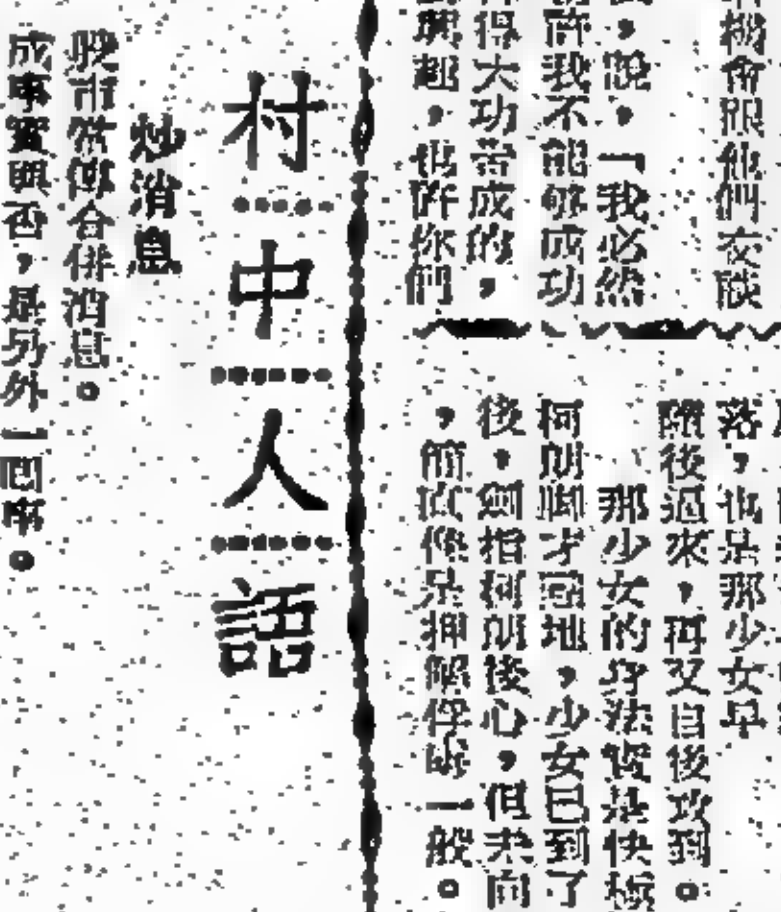 機會跟他們交談
，說，「我必然
許我不能夠成功
得大功告成的，
興趣，也許你們
落，也是那少女早
隨後過來，再又自後攻到。
那少女的身法實是快極
柯朗脚才回地，少女已到了
後，劍指柯朗後心，但未向
，簡直像是押解俘虜一般。
村中人語
炒消息
股市常傳合併消息。
成事實與否，是另外一回事。